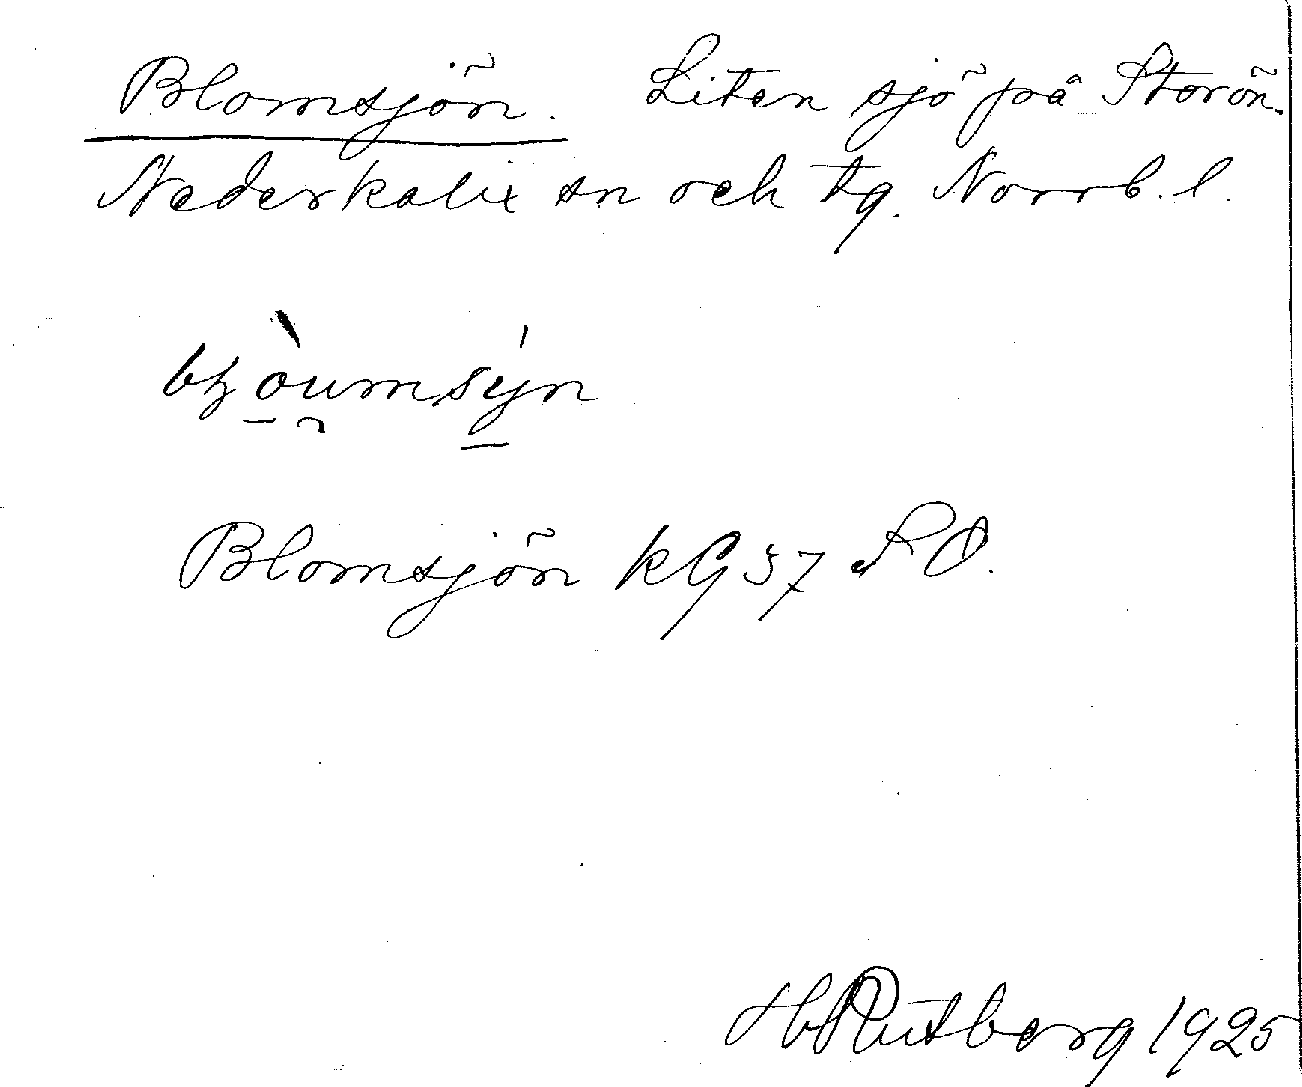 Blomsjön. Liten sjö på Storön.
Nederkalix sn och tg. Norrb. l.
Blomsjön kG 37 SO.
H Rutberg 1925